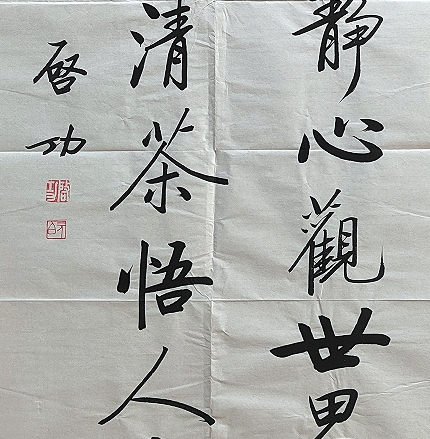 靜心觀世界
清茶悟人
啓功